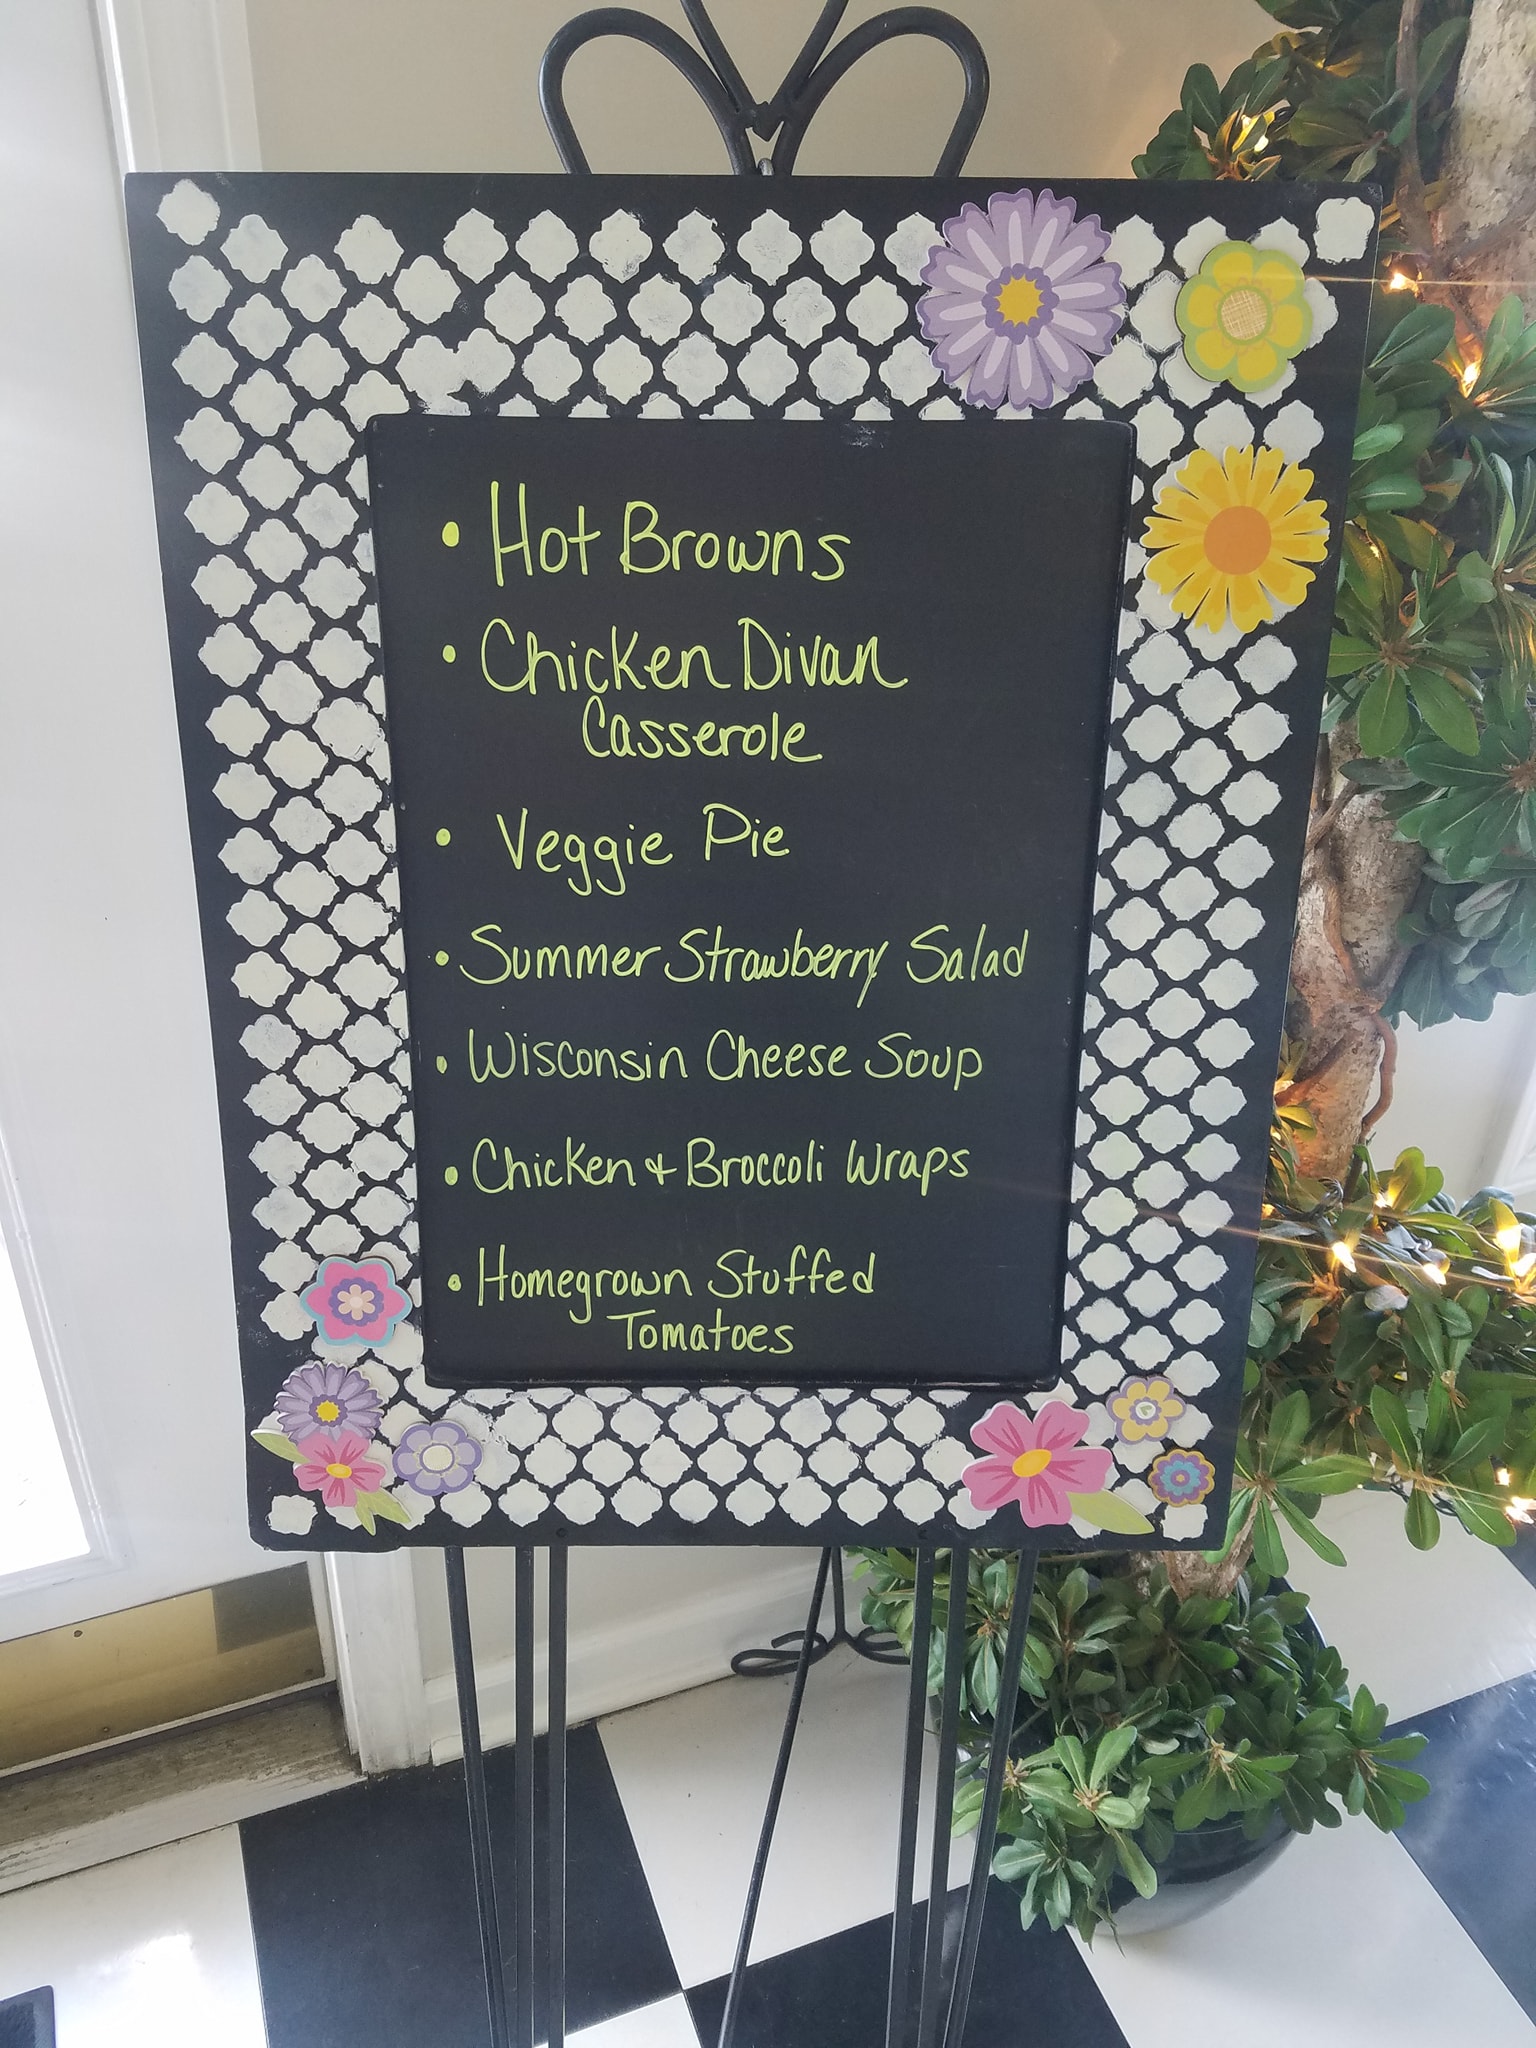 • Hot Browns
• Chicken Divan
Casserole
• Veggie Pie
• Summer Strawberry Salad
• Wisconsin Cheese Soup
• Chicken + Broccoli Wraps
• Homegrown Stuffed
Tomatoes